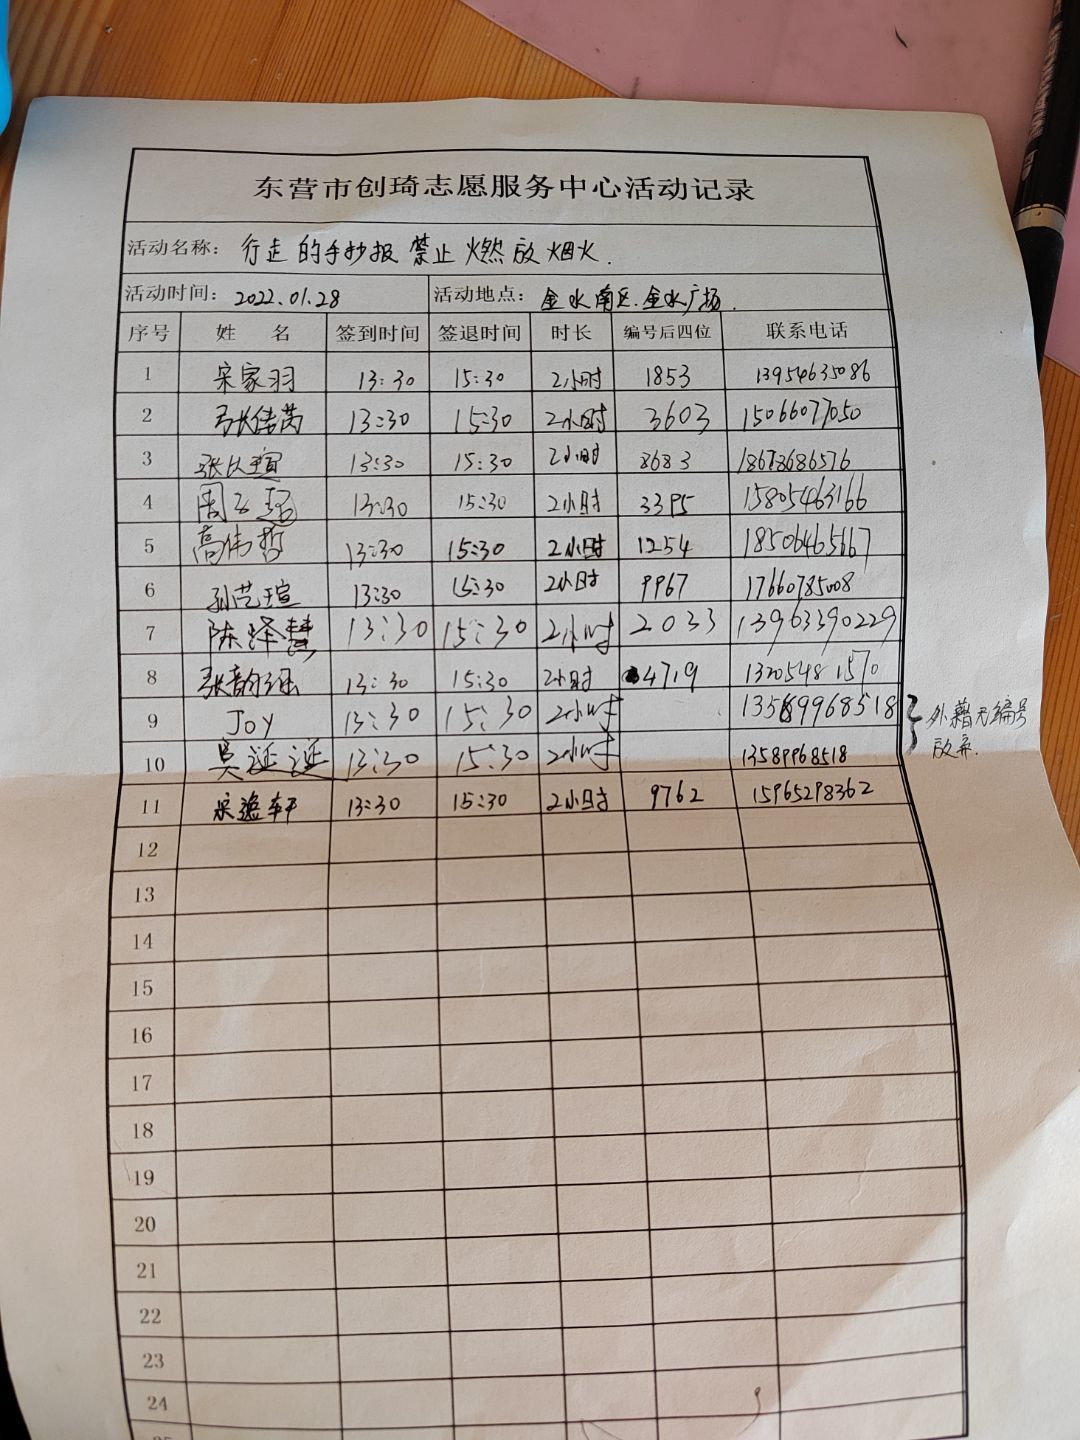 东营市创琦志愿服务中心活动记录
活动名称: 行走的手抄报 禁止燃放烟火.
活动时间: 2022.01.28 活动地点: 金水南区.金水广场.
序号 姓 名 签到时间 签退时间 时长 编号后四位 联系电话
1 宋家羽 13:30 15:30 2小时 1853 13954635086
2 张佳芮 13:30 15:30 2小时 3603 15066077050
3 张 瑄 13:30 15:30 2小时 8683 18678686576
4 周 13:30 15:30 2小时 3395 15805463166
5 高伟哲 13:30 15:30 2小时 1254 18506465667
6 孙艺瑄 13:30 15:30 2小时 9967 17660785008
7 陈泽慧 13:30 15:30 2小时 2033 13963390229
8 张韵 13:30 15:30 2小时 4719 13205481570
9 Joy 13:30 15:30 2小时 13589968518
外籍无编号
放弃.
10 吴诞诞 13:30 15:30 2小时 13589968518
11 宋逸轩 13:30 15:30 2小时 9762 15965298362
12
13
14
15
16
17
18
19
20
21
22
23
24